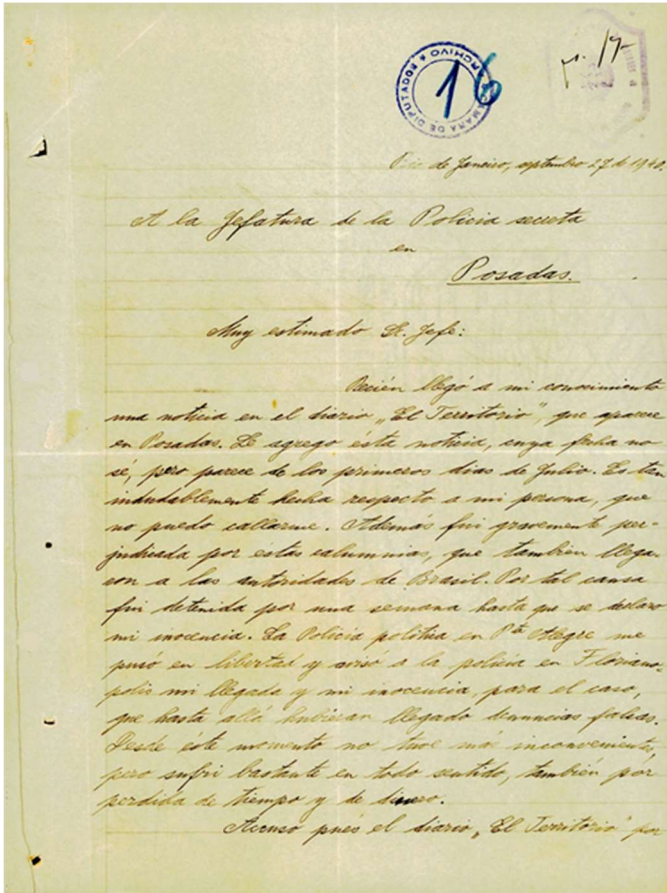 CAMARA DE DIPUTADOS ARCHIVO
16
p. 17
Rio de Janeiro, septembre 27 de 1940.
A la Jefatura de la Policia secreta
en
Posadas.
Muy estimado Sr. Jefe:
Recién llegó a mi conocimiento
una noticia en el diario „El Territorio", que aparece
en Posadas. Le agrego ésta noticia, cuya fecha no
sé, pero parece de los primeros dias de Julio. Es tan
indudablemente hecha respecto a mi persona, que
no puedo callarme. Ademas fui gravemente per-
judicada por éstas calumnias, que también llega-
ron a las autoridades de Brasil. Por tal causa
fui detenida por una semana hasta que se declaro
mi inocencia. La Policia politica en Pto Alegre me
pusó en libertad y avisó a la policia en Floriano-
polis mi llegada y mi inocencia, para el caso,
que hasta allá hubiesen llegado denuncias falsas.
Desde éste momento no tuve más inconvenientes,
pero sufri bastante en todo sentido, también por
perdida de tiempo y de dinero.
Acuso pués el diario „El Territorio" por